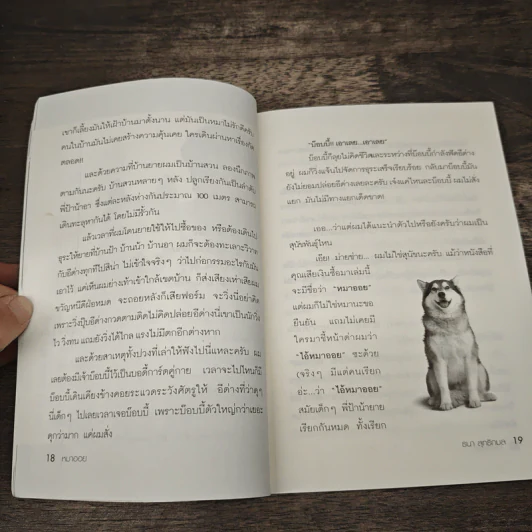 เขาก็เลี้ยงมันให้เฝ้าบ้านมาตั้งนาน แต่มันเป็นหมาไม่รักดีครับ
คนในบ้านมันไม่เคยสร้างความคุ้นเคย ใครเดินผ่านหาเรื่องกัด
ตลอด!
และด้วยความที่บ้านยายผมเป็นบ้านสวน ลองนึกภาพ
ตามกันนะครับ บ้านสวนหลายๆ หลัง ปลูกเรียงกันเป็นลำดับ
พี่ป้าน้าอา ซึ่งแต่ละหลังห่างกันประมาณ 100 เมตร สามารถ
เดินทะลุหากันได้ โดยไม่มีรั้วกั้น
แล้วเวลาที่ผมโดนยายใช้ให้ไปซื้อของ หรือต้องเดินไป
ธุระให้ยายที่บ้านป้า บ้านน้า บ้านอา ผมก็จะต้องทะเลาะวิวาท
กับอีด่างทุกทีไปสิน่า ไม่เข้าใจจริงๆ ว่าไปก่อกรรมอะไรกับมัน
เอาไว้ แค่เห็นผมย่างเท้าเข้าใกล้เขตบ้าน ก็ส่งเสียงเห่าเสียผม
ขวัญหนีดีฝ่อหมด จะถอยหลังก็เสียฟอร์ม จะวิ่งนี่อย่าคิด
เพราะวิ่งปุ๊บอีด่างกวดตามติดไม่คิดปล่อยอีด่างนี่เขาเป็นนัก
ไร วิ่งทน แถมยังวิ่งได้ไกล แรงไม่มีตกอีกต่างหาก
และด้วยสาเหตุทั้งปวงที่เล่าให้ฟังไปนี่แหละครับ ผม
เลยต้องมีเจ้าบ๊อบบี้ไว้เป็นบอดี้การ์ดคู่กาย เวลาจะไปไหนก็มี
บ๊อบบี้เดินเคียงข้างคอยระแวดระวังศัตรูให้ อีด่างที่ว่าดุๆ
นี่เด็กๆ ไปเลยเวลาเจอบ๊อบบี้ เพราะบ๊อบบี้ตัวใหญ่กว่าเยอะ
ดุกว่ามาก แค่ผมสั่ง
18 หมาออย
"บ๊อบบี้! เอาเลย...เอาเลย"
บ๊อบบี้ก็ลุยไม่คิดชีวิตและระหว่างที่บ๊อบบี้กำลังฟัดอีด่าง
อยู่ ผมก็วิ่งแจ้นไปจัดการธุระเสร็จเรียบร้อย กลับมาบ๊อบบี้มัน
ยังไม่ยอมปล่อยอีด่างเลยละครับ เจ๋งแค่ไหนละบ๊อบบี้ ผมไม่สั่ง
แยก มันไม่มีทางแยกเด็ดขาด!
เออ...ว่าแต่ผมได้แนะนำตัวไปหรือยังครับว่าผมเป็น
สุนัขพันธุ์ไหน
เฮ้ย! ม่ายช่าย... ผมไม่ใช่สุนัขนะครับ แม้ว่าหนังสือที่
คุณเสียเงินซื้อมาเล่มนี้
จะมีชื่อว่า "หมาออย"
แต่ผมก็ไม่ใช่หมานะขอ
ยืนยัน แถมไม่เคยมี
ใครมาชี้หน้าด่าผมว่า
"ไอ้หมาออย" ซะด้วย
(จริงๆ มีแต่คนเรียก
อ่ะ...ว่า "ไอ้หมาออย"
สมัยเด็กๆ พี่ป้าน้ายาย
เรียกกันหมด ทั้งเรียก
ธนา สุทธิกมล 19